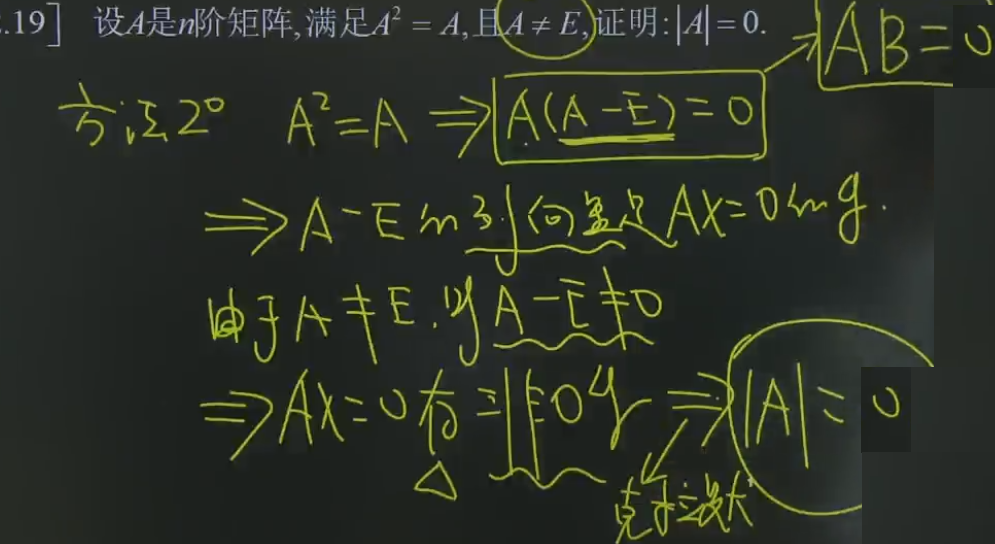 .19] 设A是n阶矩阵,满足A² = A,且A ≠ E,证明:|A| = 0.
AB = 0
方法2° A² = A ⇒ A(A - E) = 0
⇒ A - E 的列向量是AX = 0的解.
由于A ≠ E.则A - E ≠ 0
⇒ AX = 0有非0解 ⇒ |A| = 0
克